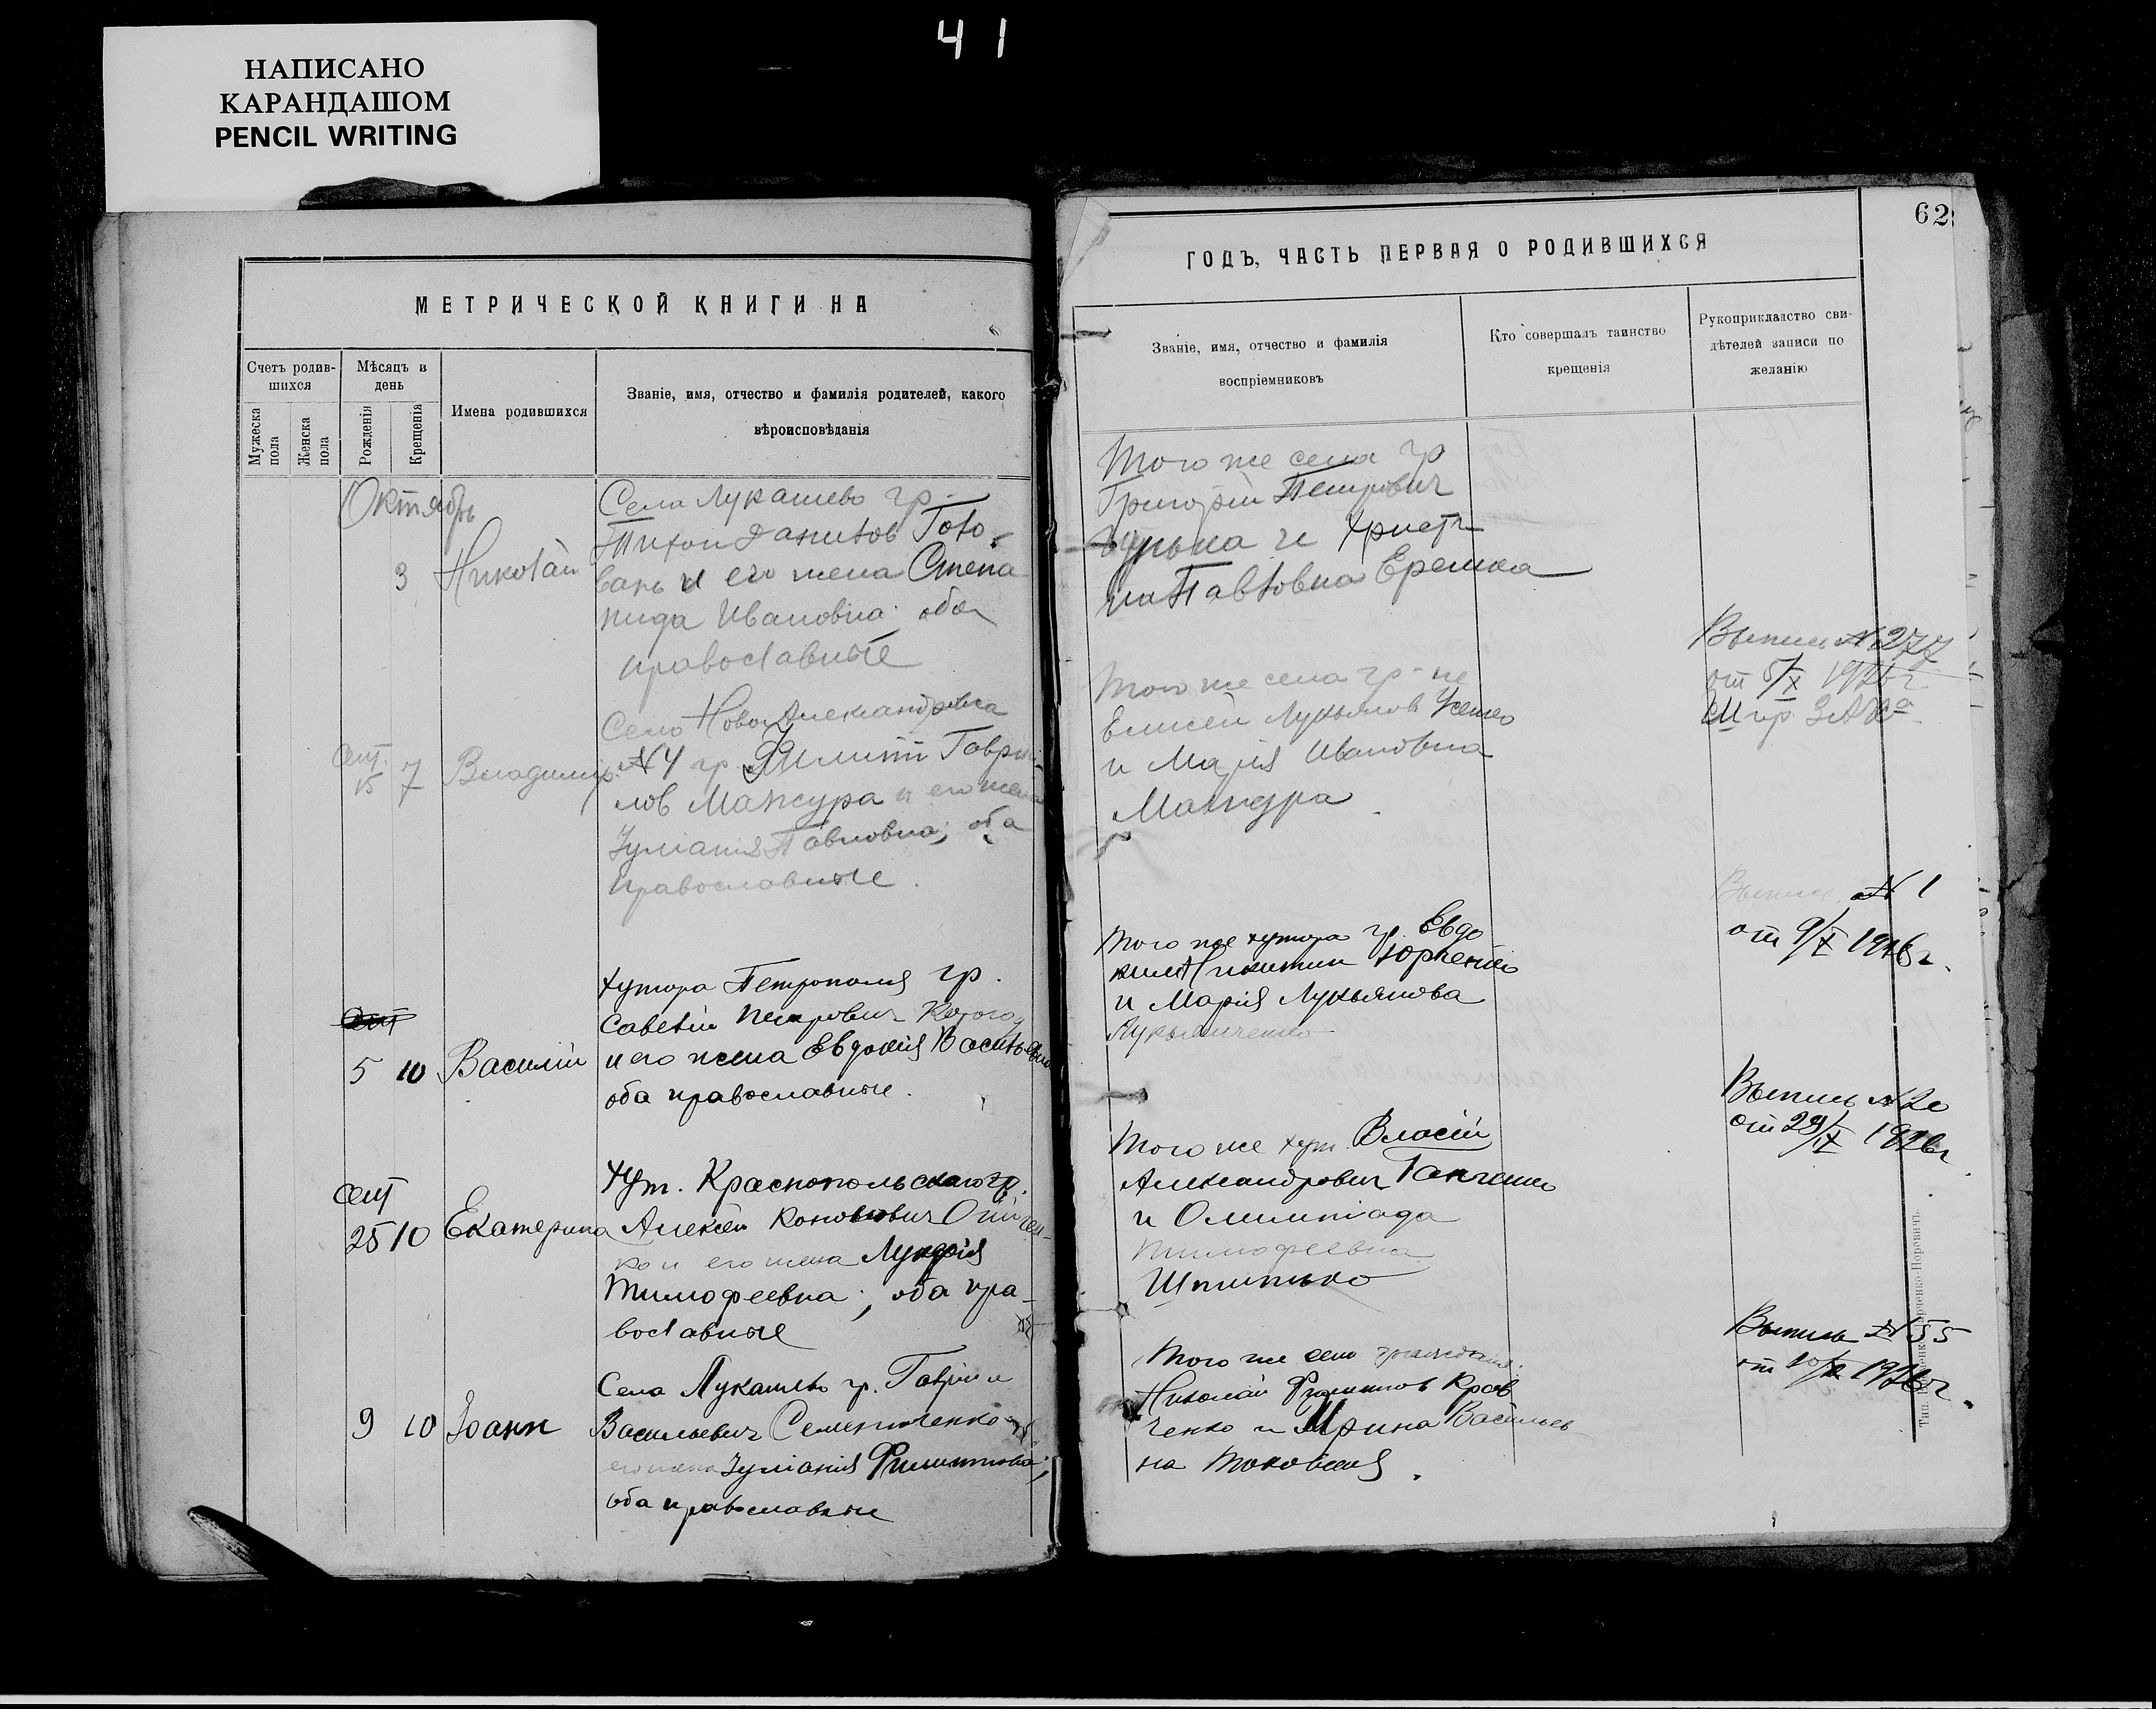 41
НАПИСАНО
КАРАНДАШОМ
PENCIL WRITING
МЕТРИЧЕСКОЙ КНИГИ НА
Счетъ родив-
шихся
Мѣсяцъ и
день
Мужеска
пола
Женска
пола
Рожденія
Крещенія
Имена родившихся
Званіе, имя, отчество и фамилія родителей, какого
вѣроисповѣданія
Октябрь
3 Николай
Села Лукашево гр.
Тихон Данилов Голо-
вань и его жена Степа
нида Ивановна оба
православные
Сент.
15 7 Владимир
Село Ново Александровка
№4 гр. Филипп Гаври-
лов Мажура и его жена
Іуліанія Павловна; оба
православные.
5 10 Василій
Хутора Петрополя гр.
Савелій Петрович
и его жена Евдокія Васильевна
оба православные.
Сент
25 10 Екатерина
Хут. Краснопольскаго гр.
Алексей Кононович
ко и его жена
Тимофеевна; оба пра-
вославные
9 10 Іоанн
Села Лукашево гр. Гавріил
Васильевич Семенюченко и
его жена Іуліанія Филиппова;
оба православные
62
ГОДЪ, ЧАСТЬ ПЕРВАЯ О РОДИВШИХСЯ
Званіе, имя, отчество и фамилія
воспріемниковъ
Кто совершалъ таинство
крещенія
Рукоприкладство сви-
дѣтелей записи по
желанію
Того же села гр
Григорій Петрович
и Христи
на Павловна Ерешка
Того же села гр-не
Елисей Лукьянов Усенко
и Марія Ивановна
Мажура
Выпись №277
от 5/X 1926 г
Того же хутора гр. Евдо
ким Никитин Юрченко
и Марія Лукьянова
Лукьянченко
Выпись №1
от 9/X 1926 г.
Того же хут. Власій
Александрович Ганченко
и Олимпіада
Тимофеевна
Шпинько
Выпись №20
от 29/IX 1926 г.
Того же село граждане
Николай Филиппов Крав
ченко и Ирина Васильев
на Токовая.
Выпись №55
от 10/X 1926 г.